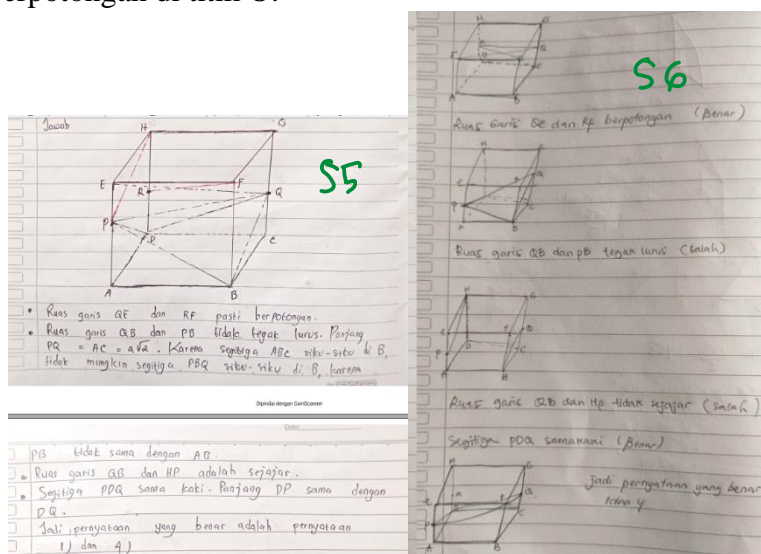 erpotongan di titik O.
Jawab
H
G
E
F
R
Q
P
D
C
A
B
S5
• Ruas garis QE dan RF pasti berpotongan.
• Ruas garis QB dan PB tidak tegak lurus. Panjang
PQ = AC = a√2. Karena segitiga ABC siku-siku di B,
tidak mungkin segitiga PBQ siku-siku di B, karena
Dipindai dengan CamScanner
Date:
PB tidak sama dengan AB.
• Ruas garis QB dan HP adalah sejajar.
• Segitiga PDQ sama kaki. Panjang DP sama dengan
DQ.
Jadi, pernyataan yang benar adalah pernyataan
1) dan 4)
S6
Ruas Garis QE dan RF berpotongan (Benar)
Ruas garis QB dan PB tegak lurus (salah)
Ruas garis QB dan Hp tidak sejajar (salah)
Segitiga PDQ samakaki (Benar)
jadi pernyataan yang benar